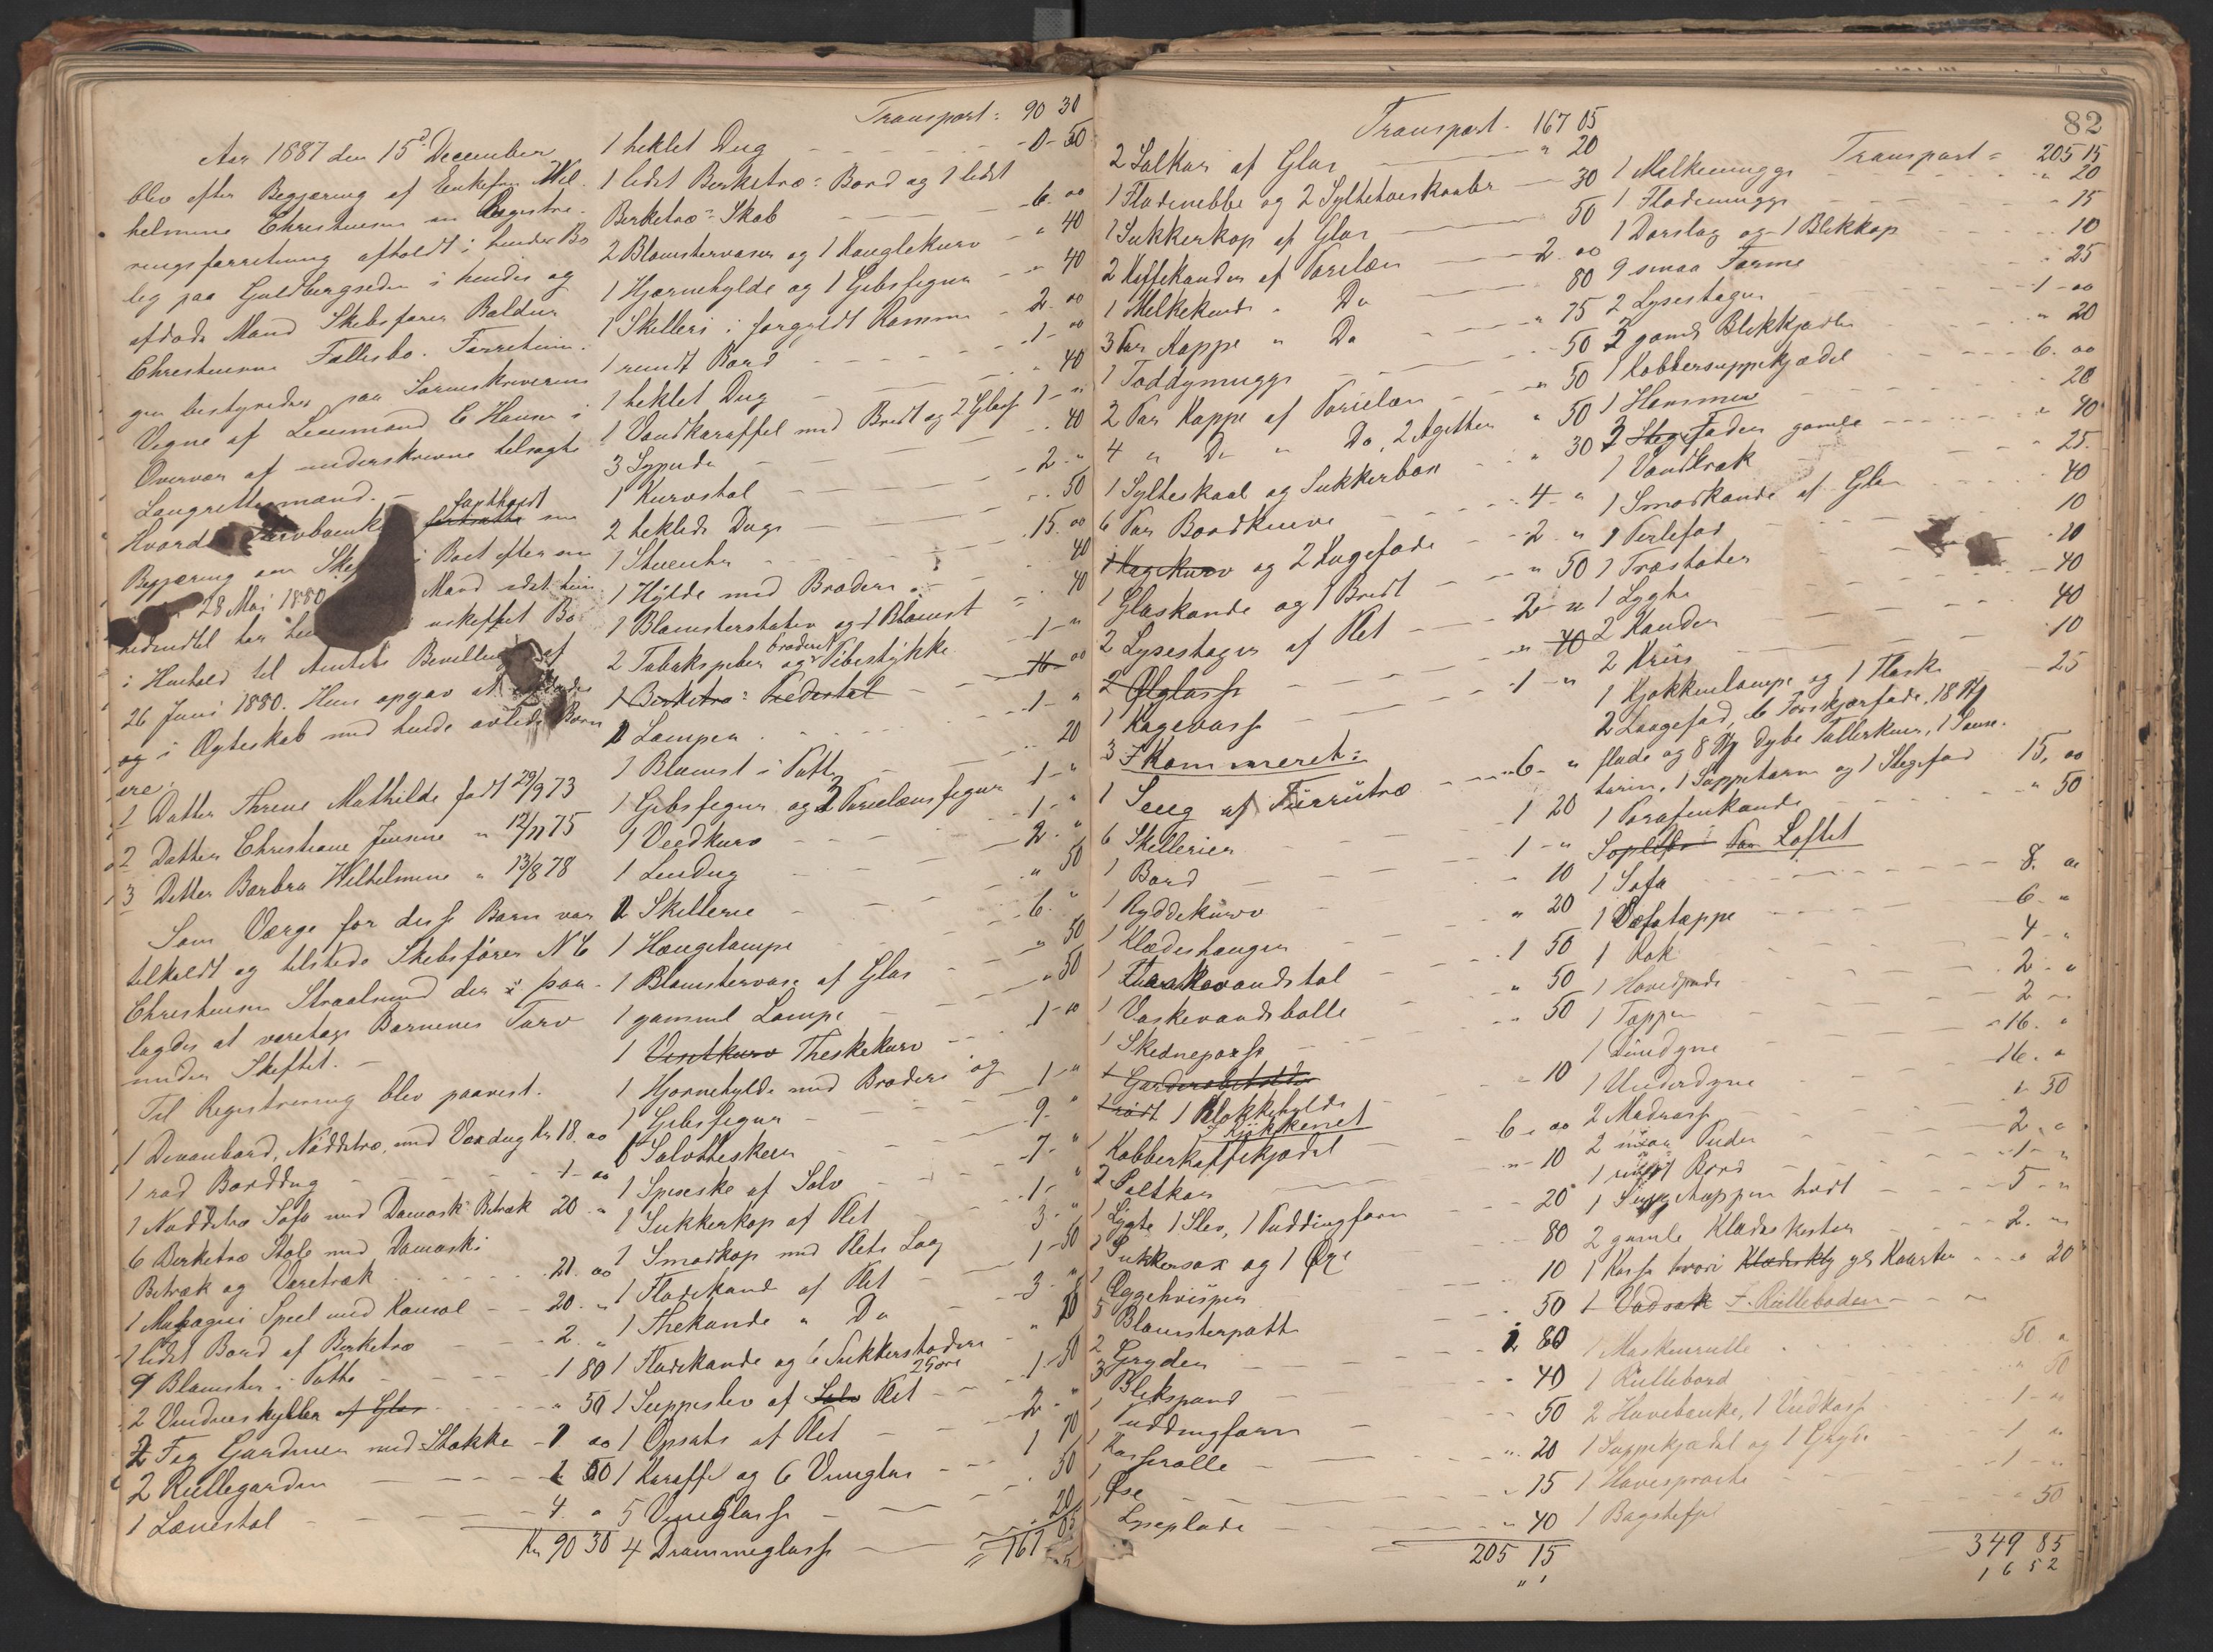 Aar 1887 den 15d December
blev efter Begjæring af Enkefru Wil
helmine Christensen en Registre
ringsforretning afholdt i hendes Bo
lig paa Guldbergseden i hendes og
afdøde Mand Skibsfører Baldur
Christensens Fællesbo. Forretnin
gen bestyredes paa Sorenskriverens
Vegne af Lensmand C Hansen i
Overvær af underskrevne tilsagte
Laugrettesmænd. -
Begjæring om i Boet efter
28 Mai 1880 Mand
uskiftet Bo
i Henhold til Amtets Bevilling af
26 Juni 1880. Hun opgav at
og i Ægteskab med hende avlede Børn
ere:
1 Datter Thrine Mathilde født 29/9 73
2 Datter Christiane Jensine " 12/11 75
3 Datter Barbra Wilhelmine " 13/8 78
Som Værge for disse Børn var
tilkaldt og tilstede Skibsfører N C
Christensen Straalsund der paa
lagdes at varetage Børnenes Tarv
under Skiftet. -
Til Registrering blev paavist.
1 Divanbord, Nøddetræ, med Voxdug Kr 18. 00
1 rød Borddug 1 - 00
1 Nøddetræ Sofa med Damask Betræk 20 "
6 Birketræ Stole med Damaski
Betræk og Varetræk 21. 00
1 Mahagni Speil med Konsol 20. "
1 lidet Bord af Birketræ 2. "
9 Blomster i Potte 1 80
2 Vindueshylder af Glas " 50
2 Fag Gardiner med Stokke 1 00
2 Rullegardin 50
1 Lænestol 4. "
Kr 90 30
Transport: 90 30
1 heklet Dug 0 - 50
1 lidet Birketræ: Bord og 1 lidet
Birketræ: Skab 6. 00
2 Blomstervaser og 1 Konglekurv " 40
1 Hjørnehylde og 1 Gibsfigur " 40
1 Skilleri i forgyldt Ramme 2. 00
1 rundt Bord 1 - 00
1 heklet Dug " 40
1 Vandkaraffel med Bret og 2 Glass 1 - "
3 Sypuder " 40
1 Kurvstol 2. "
2 heklede Duge " 50
1 Stueuhr 15. 00
1 Hylde med Broderi 40
1 Blomsterstativ og 1 Blomst " 40
2 Tabakspiber og broderet Pibestykke 1 - "
1 Birketræ: Pedestal 16 00
Lamper 1 - "
1 Blomst i Potte 20
1 Gibsfigur og 2 Porcelænsfigurer 1 - "
1 Vedkurv 1 - "
1 Lindug 2. "
2 Skillerie " 50
1 Hængelampe 6. "
1 Blomstervase af Glas " 50
1 gammel Lampe " 50
1 Visitkurv Theskekurv 1 - 00
1 Hjørnehylde med Broderi og
1 Gibsfigur 1 - "
6 Sølvtheskeer 9. "
1 Spiseske af Sølv 7 - "
1 Sukkerkop af Plet 1 - "
1 Smørkop med Plets Laag 3 - "
1 Flødekande af Plet 1 - 50
1 Thekande " Do 3 - "
1 Flødekande og 6 Sukkerskaaler
1 Suppeslev af Sølv Plet 1 - 50
1 Opsats af Plet 2 - "
1 Karaffel og 6 Vinglas 1 70
5 Vinglasse . 50
4 Drammeglasse . 20
167 05
Transport - 167 05
2 Saltkar af Glas " 20
1 Flødenebbe og 2 Syltetøiskaaler 30
1 Sukkerkop af Glas 50
2 Kaffekander af Porcelæn 2. 00
1 Melkekande " Do 80
3 Par Koppe " Do " 75
1 Toddymugge 50
2 Par Koppe af Porcelæn " 50
4 " Do " Do, 2 " 50
1 Sylteskaal og Sukkerbøsse " 30
6 Par Bordknive 4 "
1 Kagekurv og 2 Kagefade 2 "
1 Glaskande og 1 Bret " 50
2 Lysestager af Plet 2 - "
2 Ølglasse " 40
1 Kagevasse 1 - "
I Kammeret:
1 Seng af Furrutræ 6 - "
6 Skillerier 1 20
1 Bord 1 - "
1 Ryddekurv " 10
1 Klædeshænger " 20
1 Vaskevandstol 1 50
1 Vaskevandsbolle " 50
1 Skedneporse " 50
1 Garderobeholder
1 rødt 1 Klokkehylde - 10
I Kjøkkenet
1 Kobberkaffekjædel 6 - 00
2 Saltkar " 10
1 Lygte 1 Slev, 1 Puddingform 20
1 Sukkersax og 1 Øxe 80
1 Æggehvisper 10
5 Blomsterpotte . 50
2 Gryder 1 80
3 Blikspand " 40
1 Puddingform 50
1 Kasserolle " 20
1 Øse " 15
1 Lyseplade " 40
205 15
82
Transport = 205 15
1 Melkemugge " 20
1 Flødemugge " 15
1 Dørslag og 1 Blikkop 10
9 smaa Forme " 25
2 Lysestager 1 - 00
2 gamle Blikkjædler " 20
1 Kobbersuppekjædel 6. 00
1 Hammer 20
2 Stegefader gamle " 40
1 Vandkrak " 25
1 Smørkande af Glas 40
1 Perlefad 10
1 Træstøter 10
1 Lygte 40
2 Kander 40
2 Krus 10
1 Kjøkkenlampe og 1 Flaske 25
2 Laagefad, 6 Forskjærfade, 18 St
flade og 8 St dybe Tallerkner, 1 Sause
terin, 1 Suppeterin og 1 Stegefad 15. 00
1 Parafinkande " 50
Paa Loftet
1 Sofa 8. 00
1 Sofatæppe 6 - "
1 Rok 4 - "
1 Hovedpude 2 - "
1 Tæppe 2 -
1 Dundyne 16. "
1 Underdyne 16. "
2 Madrasse 1 50
2 smaa Puder 2. "
1 rundt Bord 1 - "
1 Sengetæppe hvidt 5 - "
2 gamle Klædeskister 2. "
1 Kasse hvori Klædesk " 20
1 Vadsæk I. Rulleboden
1 Maskinrulle 50. "
1 Rullebord " 50
2 Havebænke, 1 Vedkasse 1 - "
1 Suppekjædel og 1 Gryde 1 "
1 Havesprøite 1 - "
1 Bagstefjæl 50
349 85
1 6 5 2